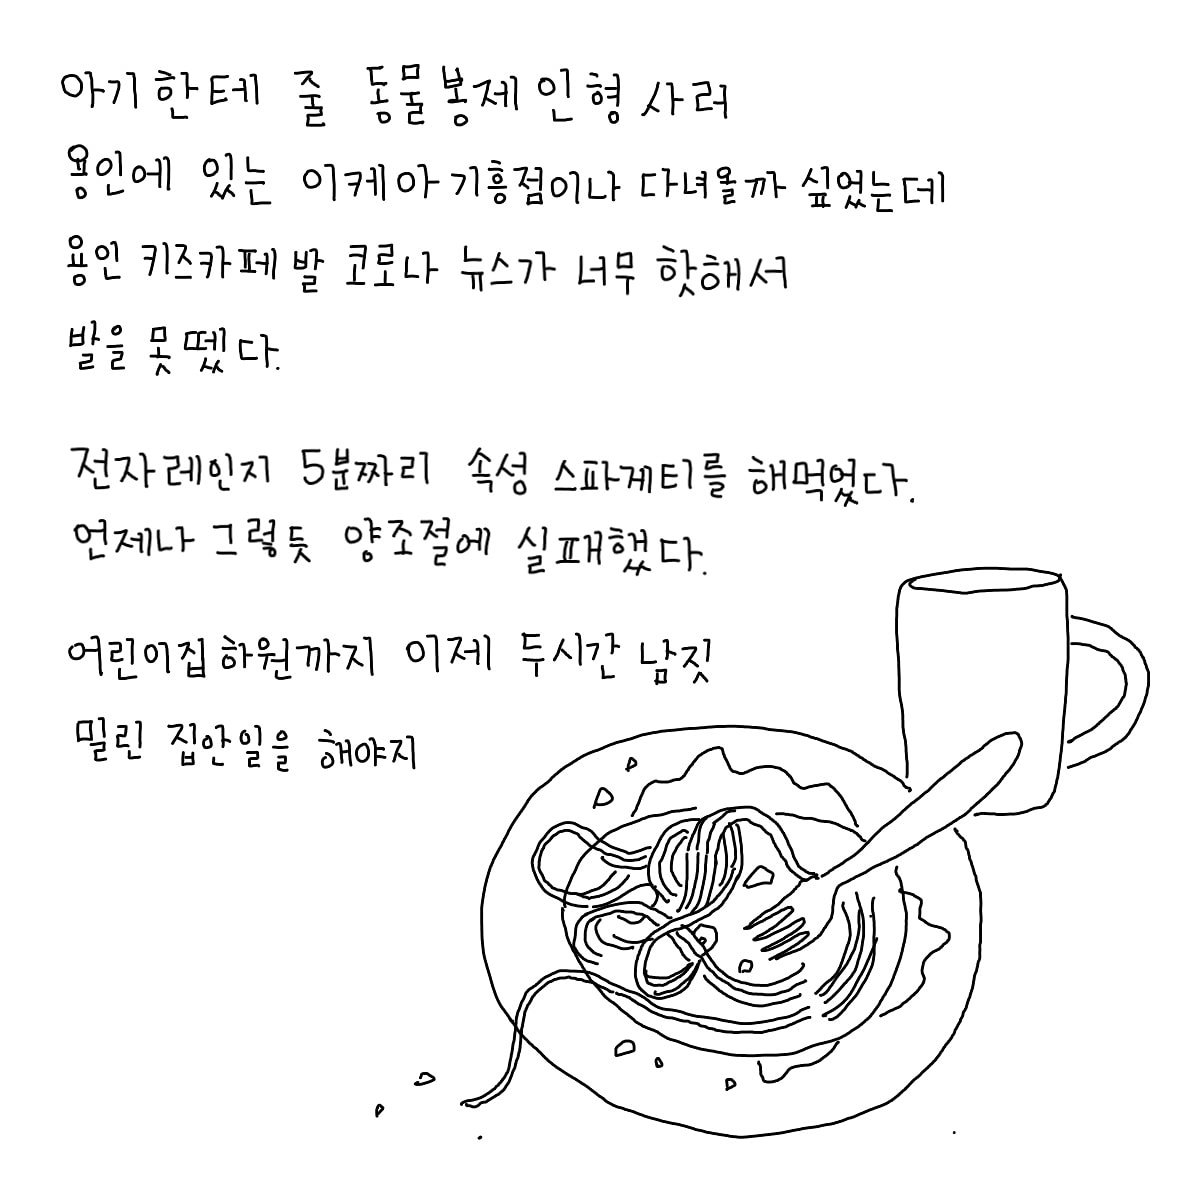 아기한테 줄 동물봉제인형 사러
용인에 있는 이케아 기흥점이나 다녀올까 싶었는데
용인 키즈카페 발 코로나 뉴스가 너무 핫해서
발을 못 뗐다.
전자레인지 5분짜리 속성 스파게티를 해먹었다.
언제나 그렇듯 양조절에 실패했다.
어린이집 하원까지 이제 두시간 남짓
밀린 집안일을 해야지